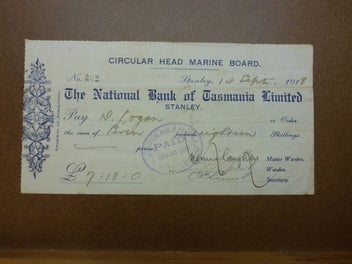 CIRCULAR HEAD MARINE BOARD.
No. 202 Stanley, 1st Sept. 1918
The National Bank of Tasmania Limited
STANLEY.
Pay D. Logan or Order
the sum of Seven pounds eighteen Shillings
pence
PAID
Master Warden.
Warden.
Secretary.
£ 7:18:0